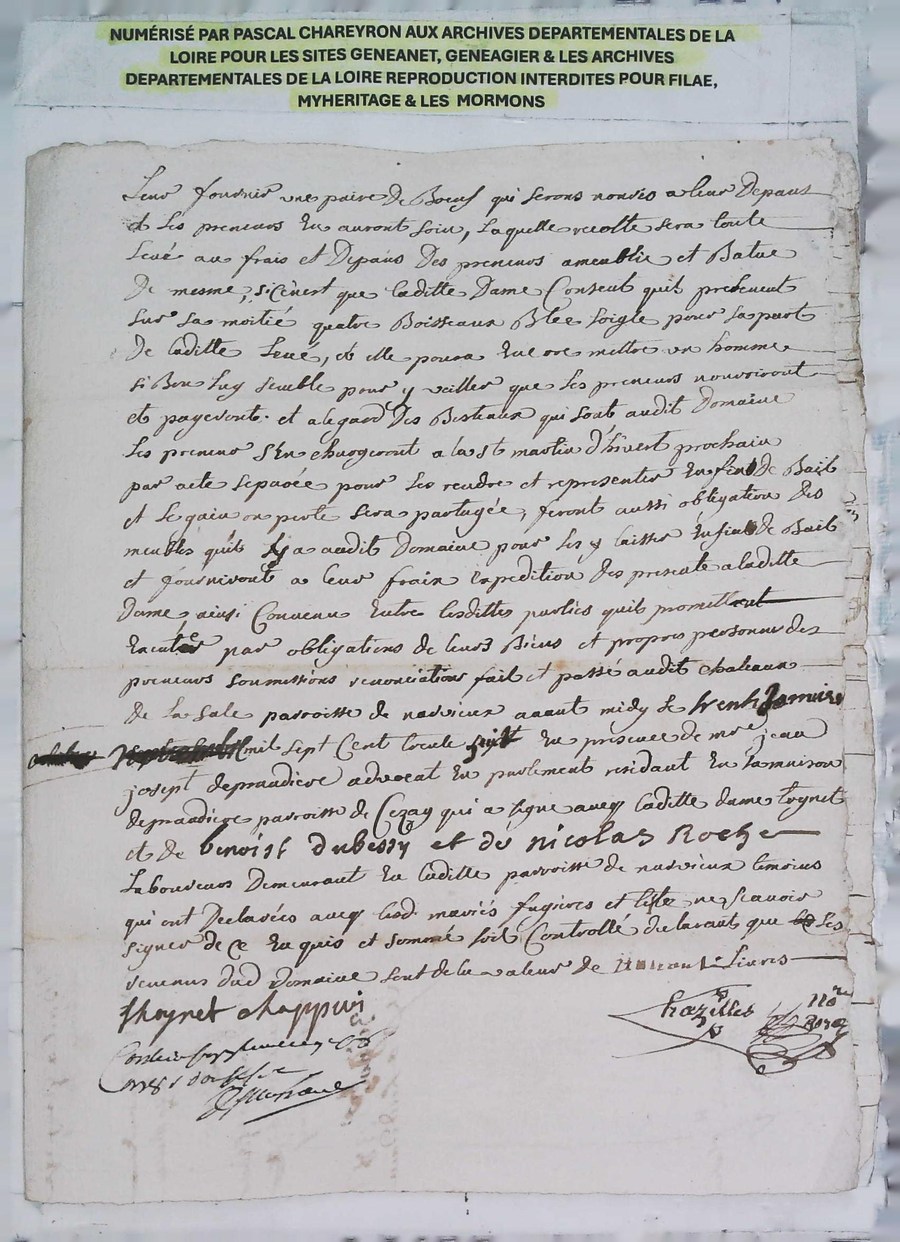 NUMÉRISÉ PAR PASCAL CHAREYRON AUX ARCHIVES DEPARTEMENTALES DE LA
LOIRE POUR LES SITES GENEANET, GENEAGIER & LES ARCHIVES
DEPARTEMENTALES DE LA LOIRE REPRODUCTION INTERDITES POUR FILAE,
MYHERITAGE & LES MORMONS
Leur fournir une paire de Boeuf qui serons nouris a leur Depans
et les preneurs En auront soin, laquelle recolte sera toute
levé au frais et Depans Des preneurs ameublie et Batue
De mesme, si Cenest que laditte Dame Consent quils prelevent
sur sa moitié quatre Boisseaux Blée soigle pour sa part
De laditte levé, et elle poura Encore mettre un homme
si Bon luy semble pour y veiller que les preneurs nouriront
et payeront. et a legard Des Bestiaux qui sont audit Domaine
les preneur s'En chargeront a la st martin D'hivert prochain
par acte separée pour les rendre et representer En fin De Bail
et le gain ou perte sera partagée, feront aussi obligation des
meubles quil y a audit Domaine pour les y laisser En fin de Bail
et fourniront a leur frain Expedition des presente a laditte
Dame, ainsi Convenu Entre lesdittes parties quils promettent
Executer par obligations de leurs Biens et propres personnes des
preneurs soumissions renonciations fait et passé audit chateaux
de la sale parroisse de nervieux avant midy le trente Janvier
mil sept Cent trente huit En presence de mre jean
joseph depraudiere advocat En parlement residant En sa maison
depraudiere parroisse de Cezay qui a signe avecq laditte dame Thynet
et de benoist dubessy et de nicolas Roche
Laboureurs Demeurant En laditte parroisse de nervieux temoins
qui ont Declarées avecq lesd. mariés fugieres et ne scavoir
signer de ce En quis et sommé soit Controllé declarant que les
revenus dud Domaine sont de la valeur de Livres
thoynet chappuis
Chazelles
no.re
Royal